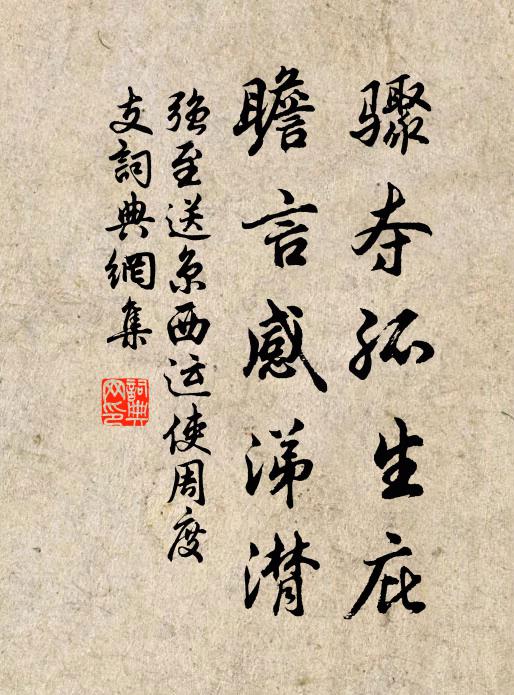 驟夺孤生庇
瞻言感涕潸
強至送京西运使周度
支詞典網集
詞典网印